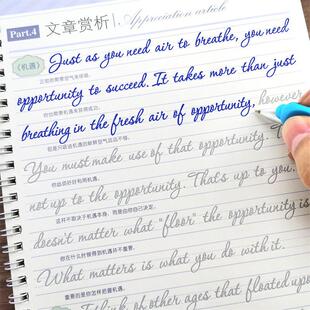 Part.4 文章赏析 Appreciation article
《机遇》 Just as you need air to breathe, you need
正如你需要空气来呼吸，
opportunity to succeed. It takes more than just
你也需要机遇来获得成功。
breathing in the fresh air of opportunity, however
但是只吸进机遇的新鲜空气远远不够。
You must make use of that opportunity. T
你必须好好利用机遇。
not up to the opportunity. That's up to you.
这并不取决于机遇本身，而是由你自己决定。
doesn't matter what "floor" the opportunity is
你在什么时候得到机遇并不重要，
What matters is what you do with it.
重要的是你怎样把握机遇。
think of other ages that floated upo